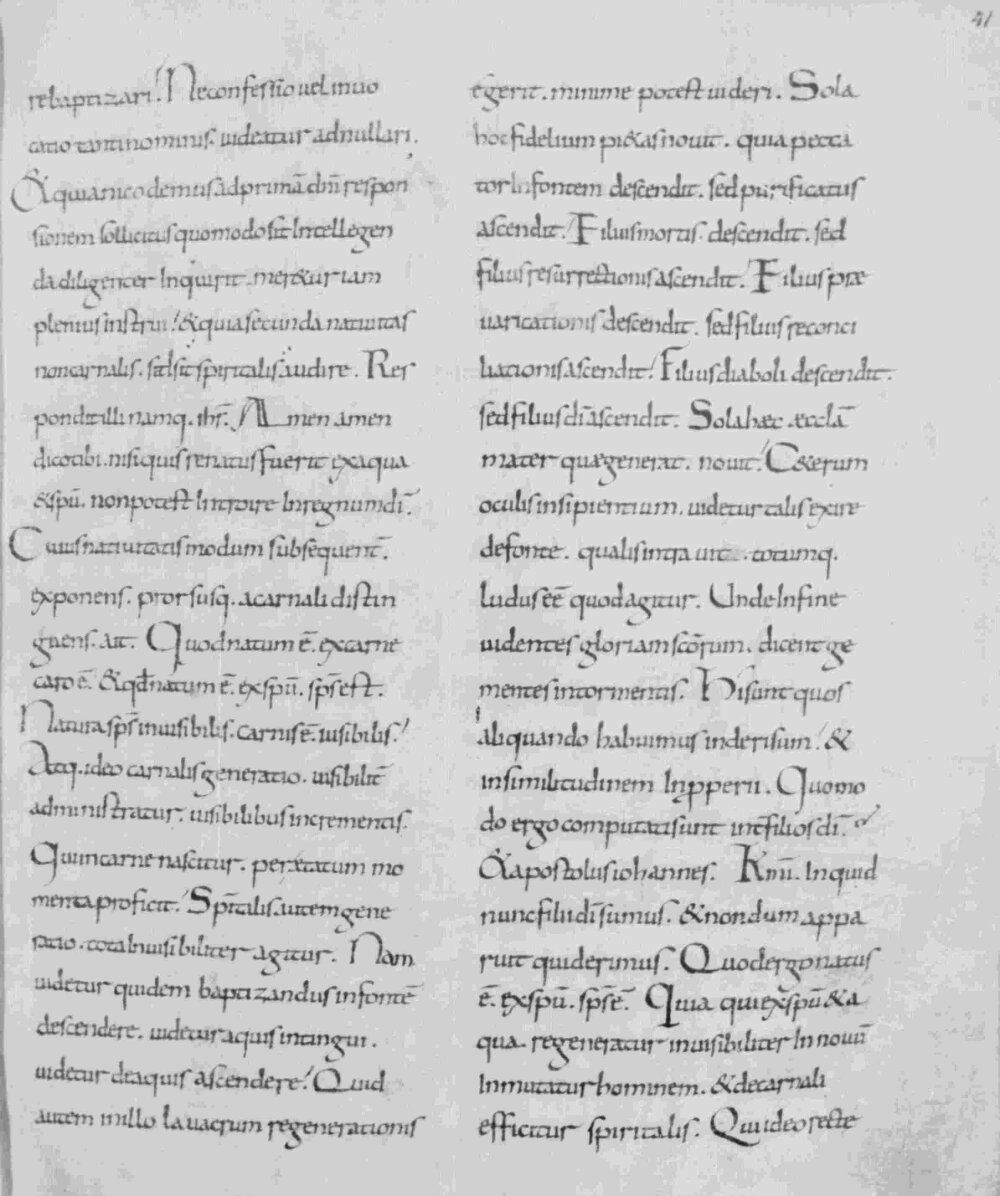 41
rebaptizari. Ne confessio uel inuo
catio tanti nominis. uideatur adnullari.
Et quia nicodemus ad primā dn̄i respon
sionem sollicitus quomodo sit intellegen
da diligenter inquirit. meretur iam
plenius instrui. & quia secunda natiuitas
non carnalis. sed sit spiritalis audire. Res
pondit illi namq. ih̄s. Amen amen
dico tibi. nisi quis renatus fuerit ex aqua
& sp̄u. non potest introire in regnum dī.
Cuius natiuitatis modum subsequent̄.
exponens. prorsusq. a carnali distin
guens. ait. Quod natum ē. ex carne
caro ē. & qđ natum ē. ex sp̄u. sp̄s est.
Natura sp̄s inuisibilis. carnis ē. uisibilis.
Atq. ideo carnalis generatio. uisibilit̄
administratur. uisibilibus incrementis.
Qui in carne nascitur. per ætatum mo
menta proficit. Sp̄italis autem gene
ratio. tota inuisibiliter agitur. Nam
uidetur quidem baptizandus in fontē
descendere. uidetur aquis intingui.
uidetur de aquis ascendere. Quid
autem in illo lauacrum regenerationis
egerit. minime potest uideri. Sola
hoc fidelium pietas nouit. quia pecca
tor in fontem descendit. sed purificatus
ascendit. Filius mortis descendit. sed
filius resurrectionis ascendit. Filius præ
uaricationis descendit. sed filius reconci
liationis ascendit. Filius diaboli descendit.
sed filius dī ascendit. Sola hæc æcclā
mater quæ generat. nouit. Ceterum
oculis insipientium. uidetur talis exire
de fonte. qualis intrauit. totumq.
ludus eē quod agitur. Unde in fine
uidentes gloriam scōrum. dicent ge
mentes in tormentis. Hi sunt quos
aliquando habuimus in derisum. &
in similitudinem inpperii. Quomo
do ergo computati sunt int̄ filios dī.
Et apostolus iohannes. Km̄i. Inquid
nunc filii dī sumus. & nondum appa
ruit quid erimus. Quod ergo natus
ē. ex sp̄u. sp̄s ē. Quia qui ex sp̄u & a
qua. regeneratur inuisibiliter in nouū
inmutatur hominem. & de carnali
efficitur spiritalis. Qui ideo recte